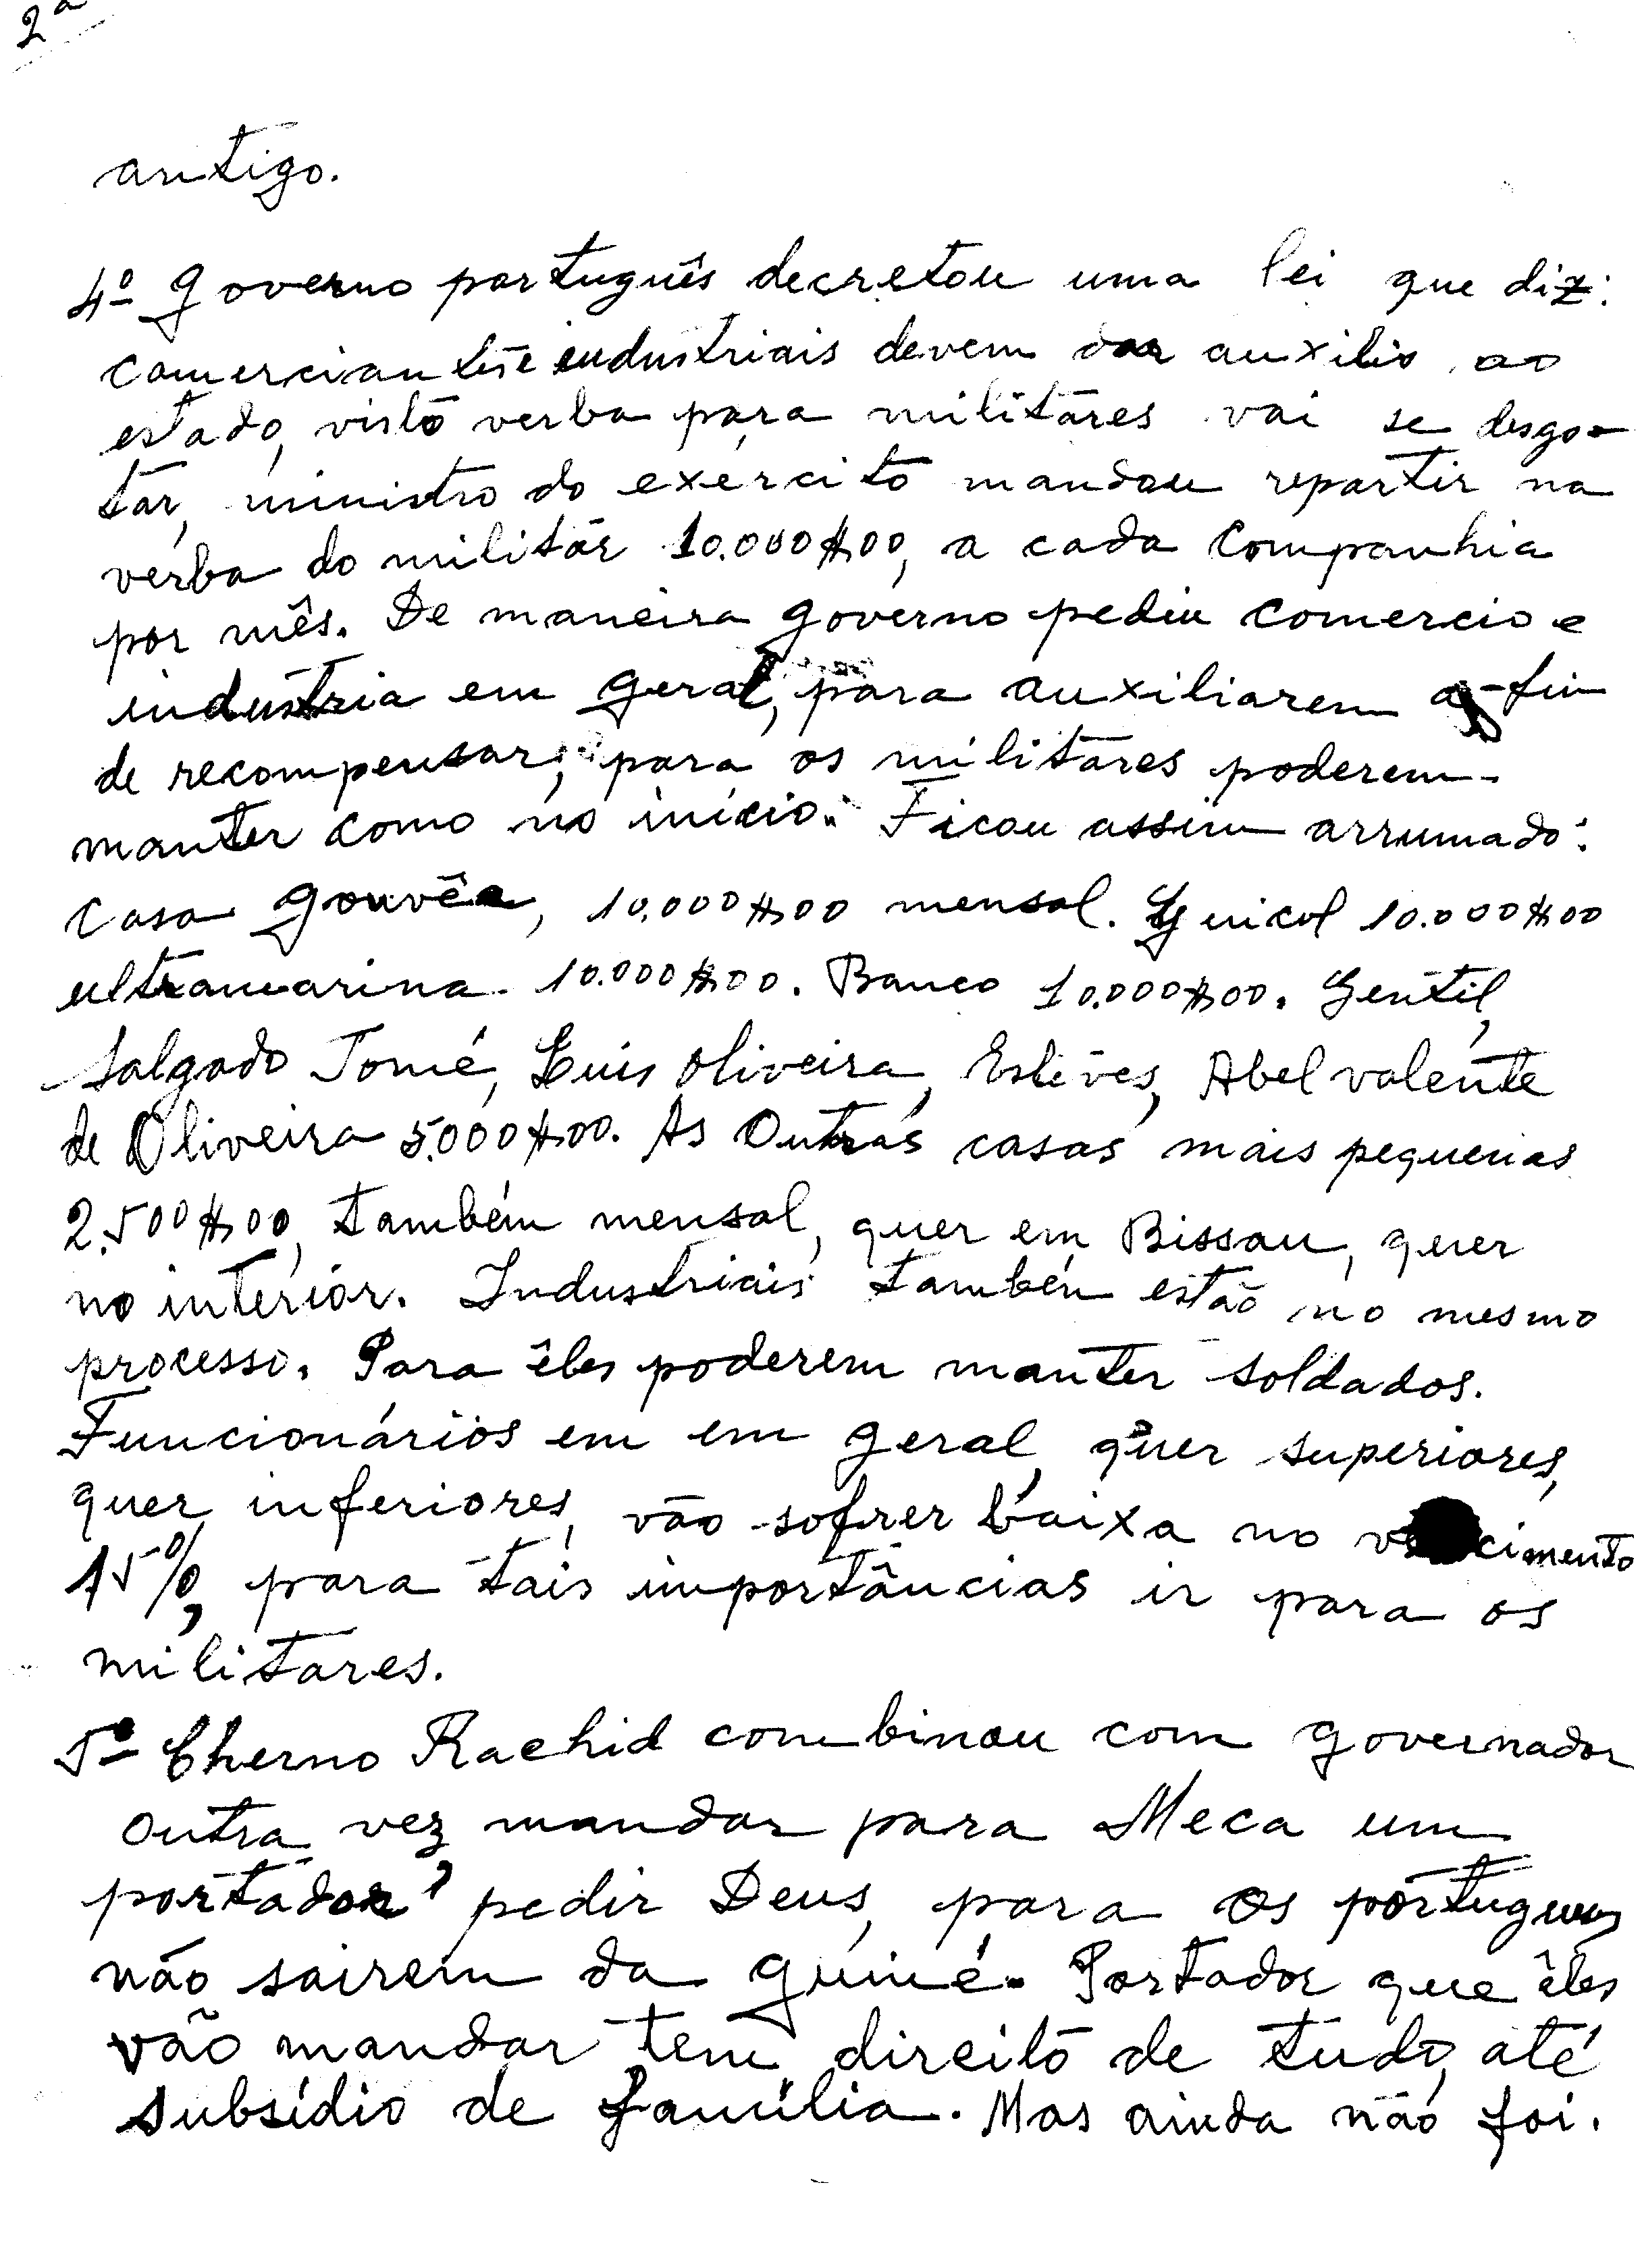 2ª
antigo.
4º Governo português decretou uma lei que diz:
comerciantes e industriais devem dar auxilio ao
estado, visto verba para militares vai se desgo-
tar, ministro do exército mandou repartir na
verba do militar 10.000$00, a cada Companhia
por mês. De maneira governo pediu comercio e
industria em geral, para auxiliarem a-fim
de recompensar, para os militares poderem
manter como no início. Ficou assim arrumado:
Casa Gouvêa, 10.000$00 mensal. Guicol 10.000$00
ultramarina. 10.000$00. Banco 10.000$00. Gentil,
Salgado Tomé, Luis Oliveira, Estêves, Abel valente
de Oliveira 5.000$00. As Outras casas mais pequenas
2.500$00, também mensal, quer em Bissau, quer
no interior. Industriais também estão no mesmo
processo. Para êles poderem manter soldados.
Funcionários em em geral, quer superiores,
quer inferiores, vão sofrer baixa no cimento
15%, para tais importâncias ir para os
militares.
5º Cherno Rachid combinou com governador
outra vez mandar para Meca um
portador, pedir Deus, para os portugueses
não sairem da guiné. Portador que êles
vão mandar tem direito de tudo, até
subsídio de família. Mas ainda não foi.